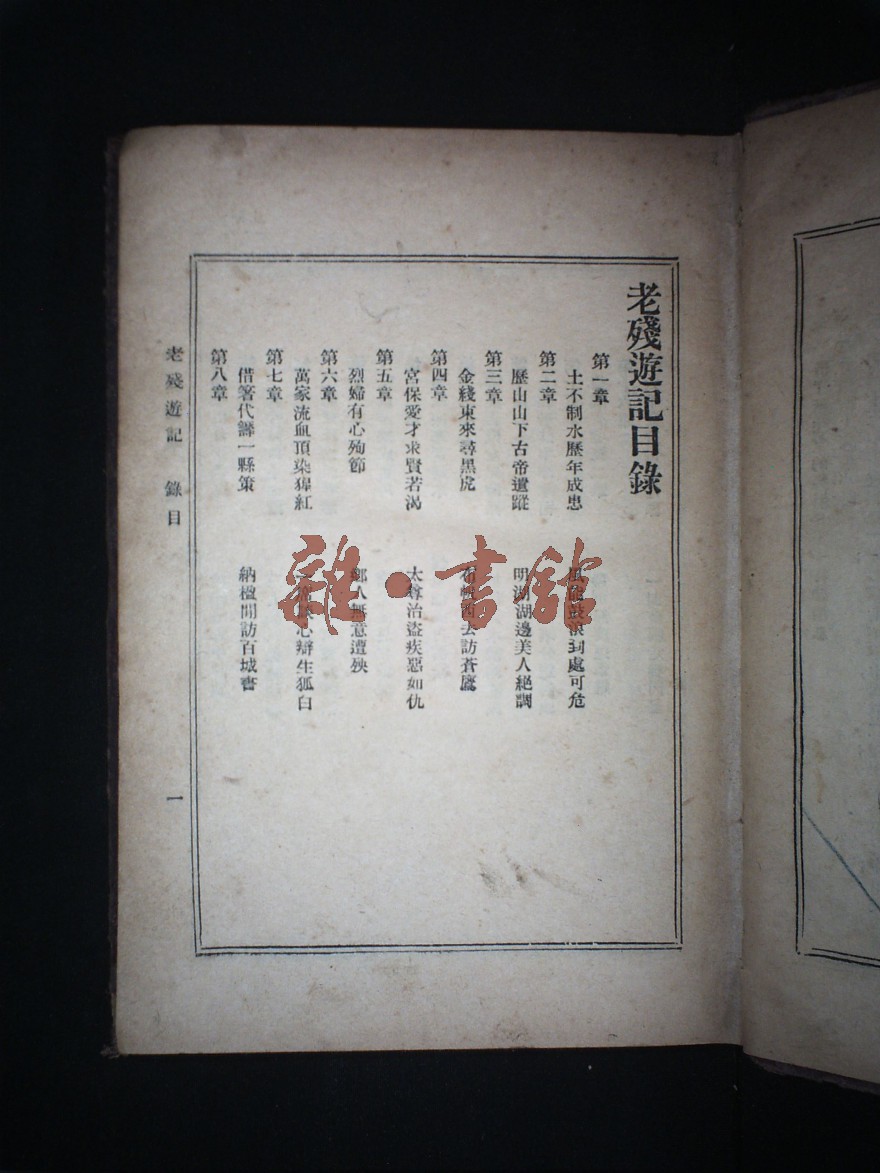 老殘遊記目錄
第一章
土不制水歷年成患　風能鼓浪到處可危
第二章
歷山山下古帝遺蹤　明湖湖邊美人絕調
第三章
金綫東來尋黑虎　布帆西去訪蒼鷹
第四章
宮保愛才求賢若渴　太尊治盜疾惡如仇
第五章
烈婦有心殉節　鄉人無意遭殃
第六章
萬家流血頂染猩紅　一席談心辯生狐白
第七章
借箸代籌一縣策　納楹閒訪百城書
第八章
老殘遊記　錄目　一
雜·書館